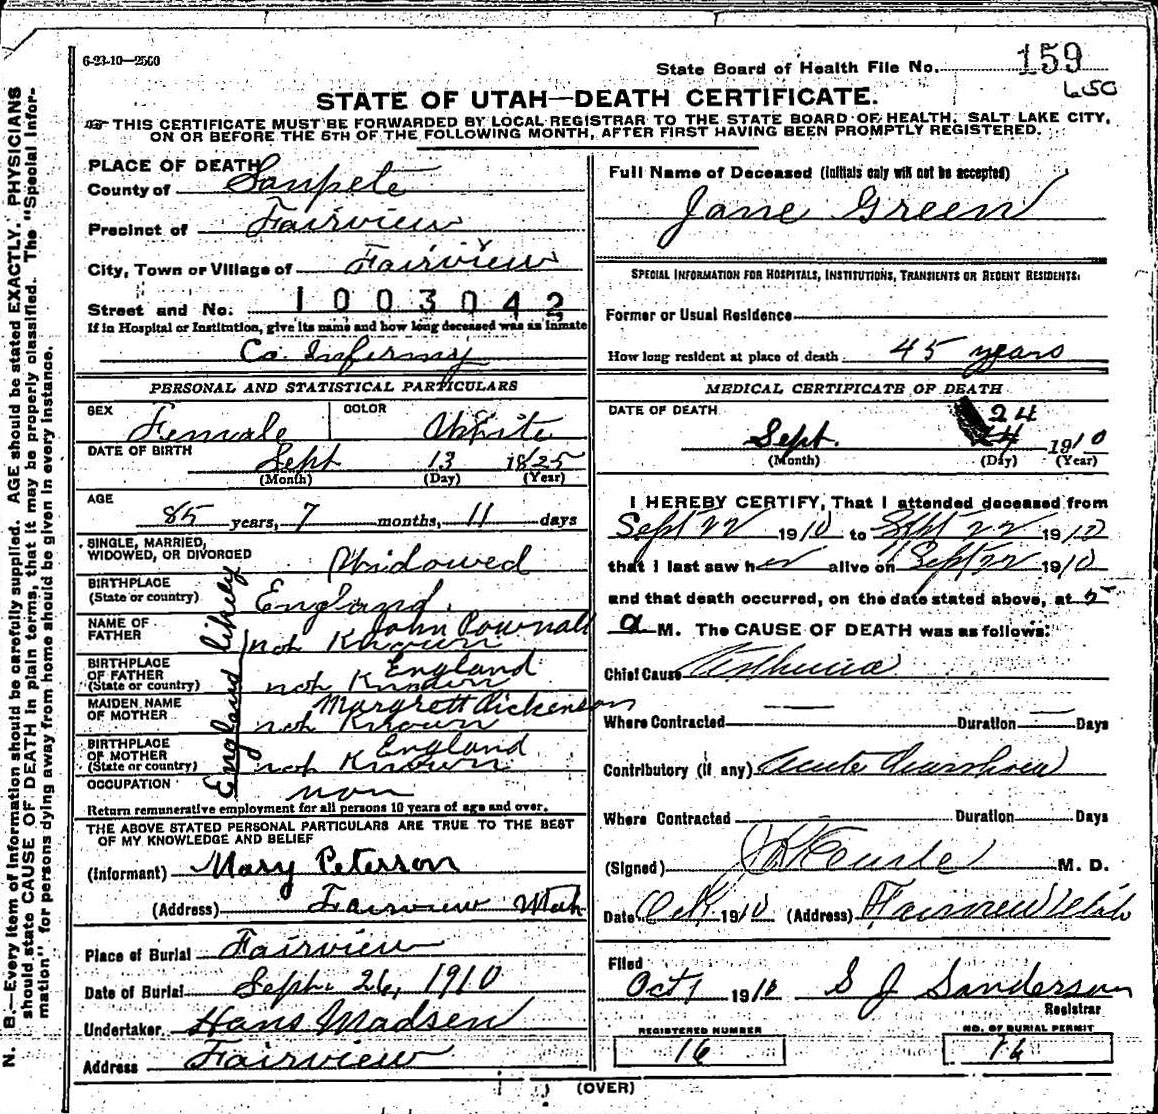 6-23-10—2500
State Board of Health File No. 159
650
STATE OF UTAH—DEATH CERTIFICATE.
THIS CERTIFICATE MUST BE FORWARDED BY LOCAL REGISTRAR TO THE STATE BOARD OF HEALTH, SALT LAKE CITY,
ON OR BEFORE THE 5TH OF THE FOLLOWING MONTH, AFTER FIRST HAVING BEEN PROMPTLY REGISTERED.
N. B.—Every item of information should be carefully supplied. AGE should be stated EXACTLY. PHYSICIANS
should state CAUSE OF DEATH in plain terms, that it may be properly classified. The "Special Infor-
mation" for persons dying away from home should be given in every instance.
PLACE OF DEATH
County of Sanpete
Precinct of Fairview
City, Town or Village of Fairview
Street and No. 1003042
If in Hospital or Institution, give its name and how long deceased was an inmate
Co. Infermy
PERSONAL AND STATISTICAL PARTICULARS
SEX Female
COLOR White
DATE OF BIRTH Sept 13 1825
(Month) (Day) (Year)
AGE
85 years, 7 months, 11 days
SINGLE, MARRIED,
WIDOWED, OR DIVORCED Widowed
BIRTHPLACE
(State or country) England.
NAME OF
FATHER John Pownall
not Known
BIRTHPLACE
OF FATHER England
(State or country) not Known
MAIDEN NAME
OF MOTHER Margrett Dickenson
not Known
BIRTHPLACE
OF MOTHER England
(State or country) not Known
England likely
OCCUPATION non
Return remunerative employment for all persons 10 years of age and over.
THE ABOVE STATED PERSONAL PARTICULARS ARE TRUE TO THE BEST
OF MY KNOWLEDGE AND BELIEF
(Informant) Mary Peterson
(Address) Fairview Utah
Place of Burial Fairview
Date of Burial Sept. 26, 1910
Undertaker Hans Madsen
Address Fairview
Full Name of Deceased (Initials only will not be accepted)
Jane Green
SPECIAL INFORMATION FOR HOSPITALS, INSTITUTIONS, TRANSIENTS OR RECENT RESIDENTS:
Former or Usual Residence
How long resident at place of death 45 years
MEDICAL CERTIFICATE OF DEATH
DATE OF DEATH
24
Sept. 24 1910
(Month) (Day) (Year)
I HEREBY CERTIFY, That I attended deceased from
Sept 22 1910 to Sept 22 1910
that I last saw her alive on Sept 22 1910
and that death occurred, on the date stated above, at 5
a M. The CAUSE OF DEATH was as follows:
Chief Cause Asthenia
Where Contracted Duration Days
Contributory (if any) Acute Diarrhoea
Where Contracted Duration Days
(Signed) M. D.
Date Oct 1, 1910 (Address) Fairview Utah
Filed
Oct 1 1910 S J Sanderson
Registrar
REGISTERED NUMBER
16
NO. OF BURIAL PERMIT
16
(OVER)